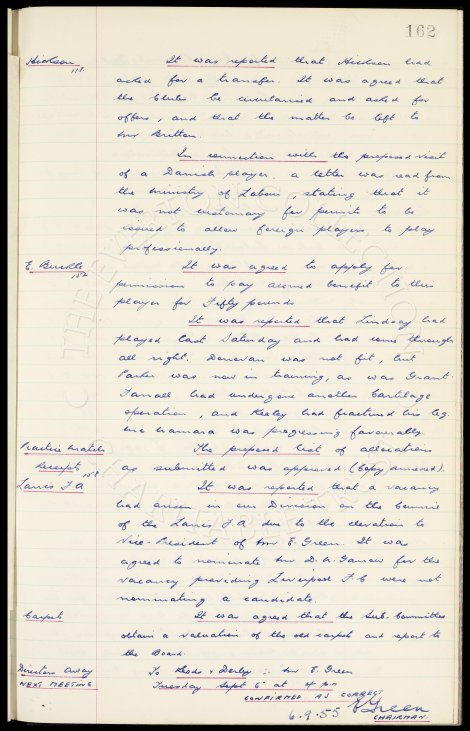 162
Hickson 118 It was reported that Hickson had
asked for a transfer. It was agreed that
the Clubs be circularised and asked for
offers, and that the matter be left to
Mr Britton.
In connection with the proposed visit
of a Danish player, a letter was read from
the Ministry of Labour, stating that it
was not customary for permits to be
issued to allow foreign players to play
professionally.
E. Buckle 152 It was agreed to apply for
permission to pay accrued benefit to this
player for Fifty pounds
It was reported that Lindsay had
played last Saturday and had come through
all right. Donovan was not fit, but
Parker was now in training, as was Grant.
Farrall had undergone another Cartilage
operation, and Keeley had fractured his leg.
McNamara was progressing favourably.
Practice Match The proposed list of allocations
Receipts 158 as submitted was approved. (Copy annexed).
Lancs F A It was reported that a vacancy
had arisen in our Division on the Council
of the Lancs F A due to the elevation to
Vice-President of Mr E. Green. It was
agreed to nominate Mr D. A. for the
vacancy providing Liverpool F C were not
nominating a candidate.
Carpet It was agreed that the Sub-Committee
obtain a valuation of the old carpet and report to
the Board.
Directors Away To Leeds & Derby :- Mr E. Green
NEXT MEETING Tuesday Sept 6 at 4 pm
CONFIRMED AS CORRECT
6.9.55 Green
CHAIRMAN